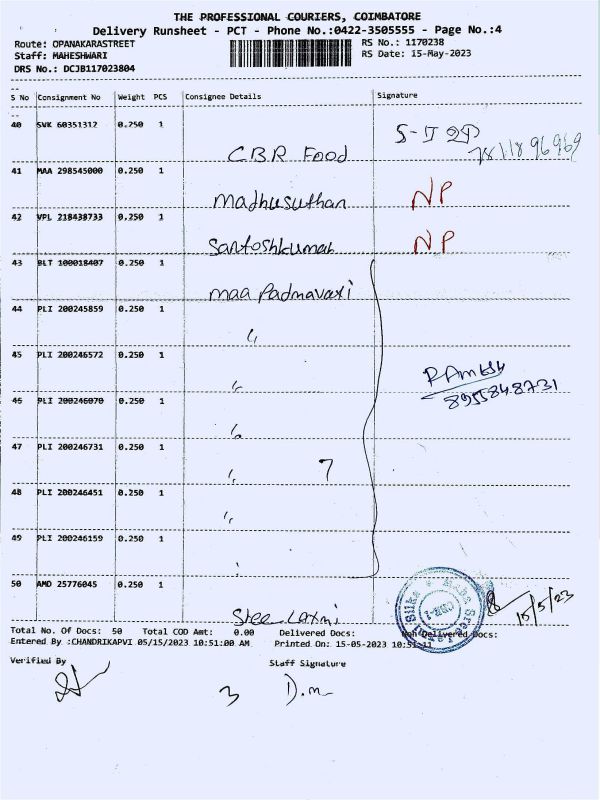 THE PROFESSIONAL COURIERS, COIMBATORE
Delivery Runsheet - PCT - Phone No.:0422-3505555 - Page No.:4
Route: OPANAKARASTREET
RS No.: 1170238
Staff: MAHESHWARI
RS Date: 15-May-2023
DRS No.: DCJB117023804
S No Consignment No Weight PCS Consignee Details Signature
40 SVK 60351312 0.250 1
CBR Food
7811896969
41 MAA 298545000 0.250 1
Madhusuthan NP
42 VPL 218438733 0.250 1
Santoshkumar NP
43 BLT 100018407 0.250 1
maa Padmavati
44 PLI 200245859 0.250 1
"
45 PLI 200246572 0.250 1
"
Ramesh
8955848731
46 PLI 200246070 0.250 1
"
47 PLI 200246731 0.250 1
" 7
48 PLI 200246451 0.250 1
"
49 PLI 200246159 0.250 1
"
50 AMD 25776045 0.250 1
Sree Laxmi
15/5/23
Total No. Of Docs: 50 Total COD Amt: 0.00 Delivered Docs: Non Delivered Docs:
Entered By :CHANDRIKAPVI 05/15/2023 10:51:00 AM Printed On: 15-05-2023 10:51:11
Verified By Staff Signature
3 D.m